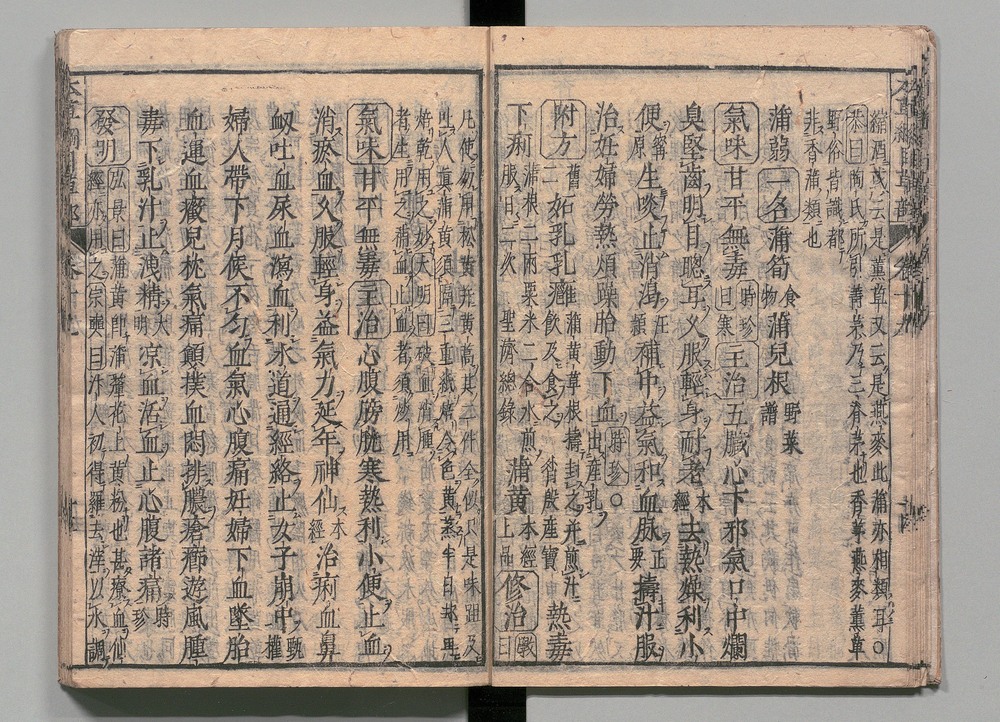 縮酒或云是薫草又云是燕麥此蒲亦相類耳○
恭曰陶氏所引菁茅乃三脊茅也香茅燕麥薫草
野俗皆識都
非香蒲類也
蒲蒻一名蒲筍食物蒲兒根野菜譜
氣味甘平無毒時珍曰寒主治五臟心下邪氣口中爛
臭堅齒明目聰耳久服輕身耐老本經去熱燥利小
便甯原生啖止消渴汪頴補中益氣和血脉正要擣汁服
治妊婦勞熱煩躁胎動下血時珍出產乳○
附方舊二妬乳乳癰蒲黃草根擣封之并煎汁飲及食之昝殷產寶熱毒
下痢蒲根二兩粟米二合水煎服日二次聖濟總錄蒲黃本經上品修治斆曰
凡使勿用松黃并黃蒿其二件全似只是味跙及
吐人真蒲黃須隔三重紙焙令色黃蒸半日却再
焙乾用之妙大明曰破血消腫
者生用之補血止血者須炒用
氣味甘平無毒主治心腹膀胱寒熱利小便止血
消瘀血久服輕身益氣力延年神仙本經治痢血鼻
衂吐血尿血瀉血利水道通經絡止女子崩中甄權
婦人帶下月候不匀血氣心腹痛妊婦下血墜胎
血運血癥兒枕氣痛顚撲血悶排膿瘡癤遊風腫
毒下乳汁止洩精大明凉血活血止心腹諸痛時珍
發明弘景曰蒲黃卽蒲釐花上黃粉也甚療血仙
經亦用之宗奭曰汴人初得羅去滓以水調